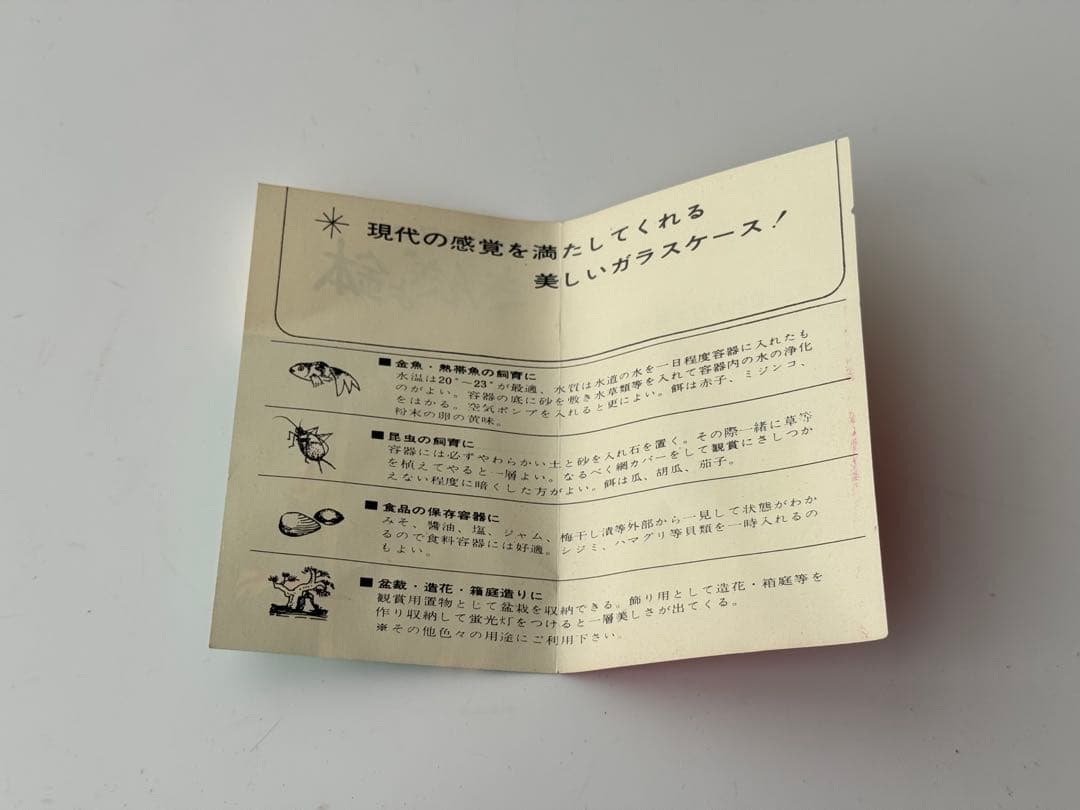 現代の感覚を満たしてくれる
美しいガラスケース！
■金魚・熱帯魚の飼育に
水温は20°－23°が最適、水質は水道の水を一日程度容器に入れたも
のがよい。容器の底に砂を敷き水草類等を入れて容器内の水の浄化
をはかる。空気ポンプを入れると更によい。餌は赤子、ミジンコ、
粉末の卵の黄味。
■昆虫の飼育に
容器には必ずやわらかい土と砂を入れ石を置く。その際一緒に草等
を植えてやると一層よい。なるべく網カバーをして観賞にさしつか
えない程度に暗くした方がよい。餌は瓜、胡瓜、茄子。
■食品の保存容器に
みそ、醬油、塩、ジャム、梅干し漬等外部から一見して状態がわか
るので食料容器には好適。シジミ、ハマグリ等貝類を一時入れるの
もよい。
■盆裁・造花・箱庭造りに
観賞用置物として盆裁を収納できる。飾り用として造花・箱庭等を
作り収納して蛍光灯をつけると一層美しさが出てくる。
※その他色々の用途にご利用下さい。